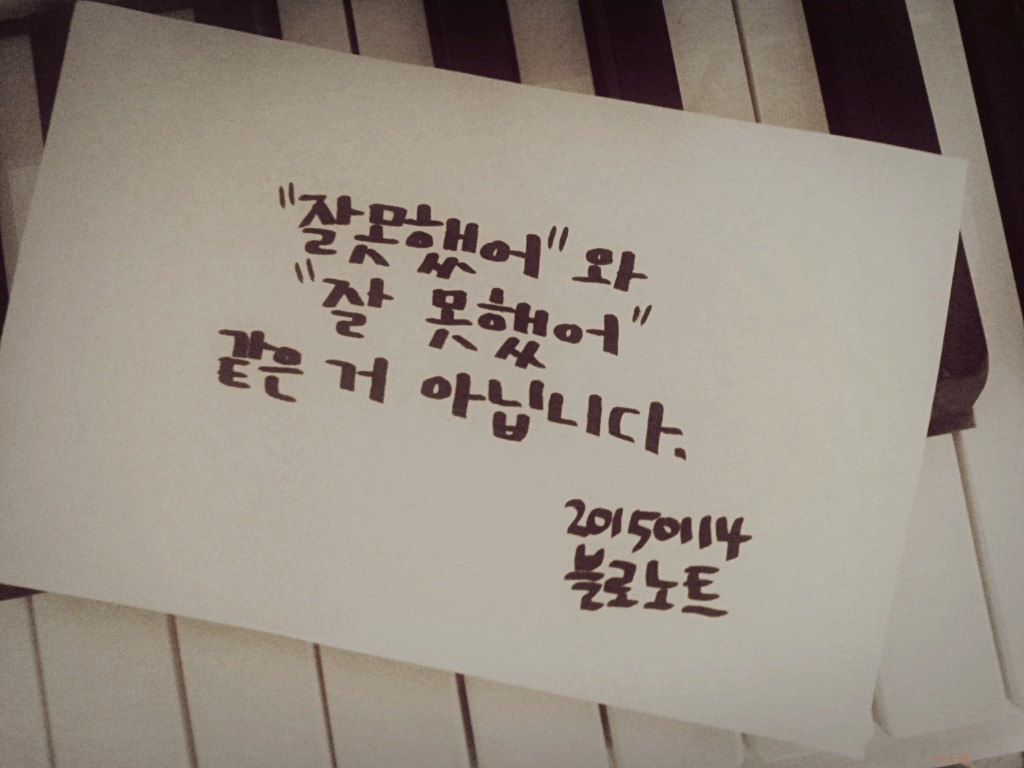 "잘못했어"와
"잘 못했어"
같은 거 아닙니다.
20150114
블로노트